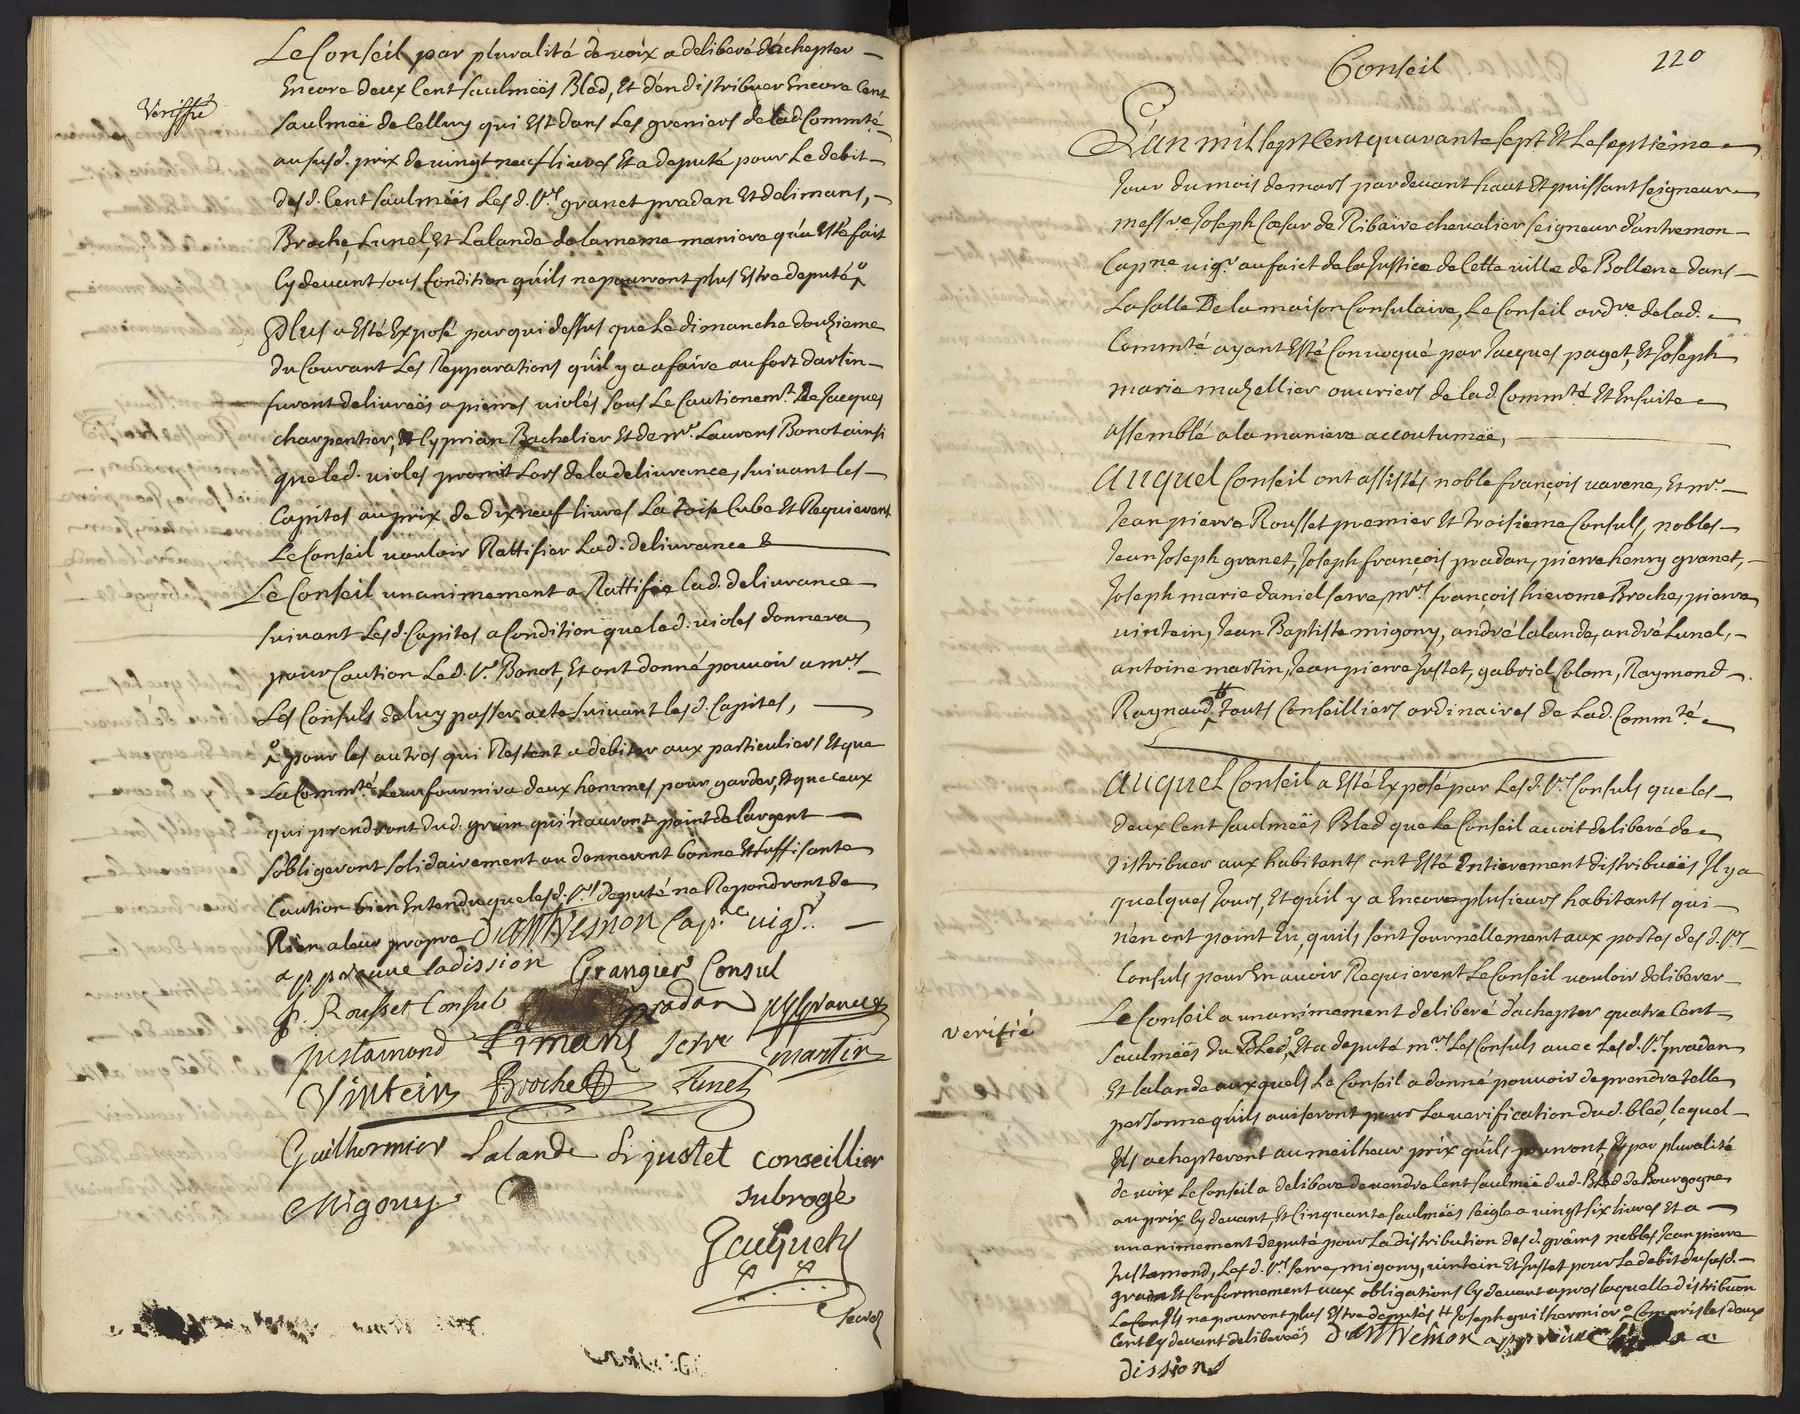 Le Conseil par pluralité de voix a deliberé d'achepter
Encore deux Cent saulmeës Bled, Et d'en distribuer Encore Cent
Veriffié
saulmeë de Celluy qui Est dans Les greniers de lad. Commté
au susd. prix de vingt neuf livres Et a deputé pour Le debit
desd. Cent saulmeës Les d. Srs granet pradan Et delimans,
Broche, Lunel, Et Lalande de la meme maniere qu'a Esté fait
Cy devant sous Condition qu'ils ne pourront plus Estre deputé
Plus a Esté Exposé par qui dessus que Le dimanche douzieme
du Courant Les Repparations qu'il y a afaire au fort dartin
furent delivreës a pierres violés sous Le Cautionemt. de Jacques
charpentier, Et Cyprian Bachelier Et de mr. Laurens Bonot ainsi
que led. violes promit Lors de la delivrance, suivant les
Capites au prix de dix neuf livres La toise Cube Et Requierent
Le Conseil vouloir Rattifier Lad. delivrance &
Le Conseil unanimement a Rattifié lad. delivrance
suivant Lesd. Capites a Condition que led. violes donnera
pour Caution Led. Sr. Bonot, Et ont donné pouvoir a mrs
Les Consuls de luy passer acte suivant les d. Capites,
pour les autres qui Restent a debiter aux particuliers Et que
La Commté. Leur fournira deux hommes pour garder, Et que ceux
qui prendront dud. grain qui n'auront point de l'argent
s'obligeront solidairement ou donneront bonne Et suffisante
Caution bien Entendu que les d. Srs deputé ne Repondront de
Rien a leur propre d'anttremon Cap.ne vigr.
approuve ladission Grangier Consul
Rousset Consul pradan granet
justamond Limans serre martin
Vintein Broche Lunel
Guilhermier Lalande justet conseillier
Migony subrogé
Gauguely
secre
Conseil 220
L'an mil sept Cent quarante sept Et Le septieme
Jour du mois de mars pardevant haut Et puissant seigneur
messre. Joseph Cœsar de Ribaire chevalier seigneur d'antremon
Capne. vigr. au faict de la Justice de Cette ville de Bollene dans
La salle De la maison Consulaire, Le Conseil ordre. de lad.
Commté ayant Esté Convoqué par Jacques paget, Et Joseph
marie mazellier ouvriers de lad. Commté Et Ensuite
assemblé a la maniere accoutumeë,
Auquel Conseil ont assistés noble françois varene, Et mr.
Jean pierre Rousset premier Et troisieme Consuls, nobles
Jean Joseph granet, Joseph françois pradan, pierre henry granet,
Joseph marie daniel serre, mrs. françois hierome Broche, pierre
vintein, Jean Baptiste migony, andré lalande, andré Lunel,
antoine martin, Jean pierre Justet, gabriel Colom, Raymond
Raynaud, touts Conseilliers ordinaires de Lad. Commté
Auquel Conseil a Esté Exposé par Les d. Srs Consuls que les
deux Cent saulmeës Bled que Le Conseil avoit deliberé de
distribuer aux habitants ont Esté Entierement distribueës Il y a
quelques Jours, Et qu'il y a Encore plusieurs habitants qui
n'en ont point Eu, qu'ils sont Journellement aux portes des d. Srs
Consuls pour En avoir Requierent Le Conseil vouloir deliberer
verifié
Le Conseil a unanimement deliberé d'achepter quatre Cent
saulmeës du Bled, Et a deputé mrs Les Consuls avec Les d. Srs pradan
Et lalande auxquels Le Conseil a donné pouvoir de prendre telle
personne qu'ils aviseront pour La verification dud. bled, lequel
Ils achepteront au meilheur prix qu'ils pourront, Et par pluralité
de voix Le Conseil a deliberé de vendre Cent saulmeë dud. Bled de Bourgogne
au prix Cy devant, Et Cinquante saulmeës seigle a vingt six livres Et a
unanimement deputé pour La distribution des d. grains nobles Jean pierre
Justamond, Les d. Srs serre, migony, vintein Et Justet pour Le debit du susd.
grain Et Conformement aux obligations Cy devant apres laquelle distribuon
Le Conls ne pourront plus Estre deputés # Joseph guilhermier Compris les deux
Cent Cy devant delibereës d'anttremon approuve
dission